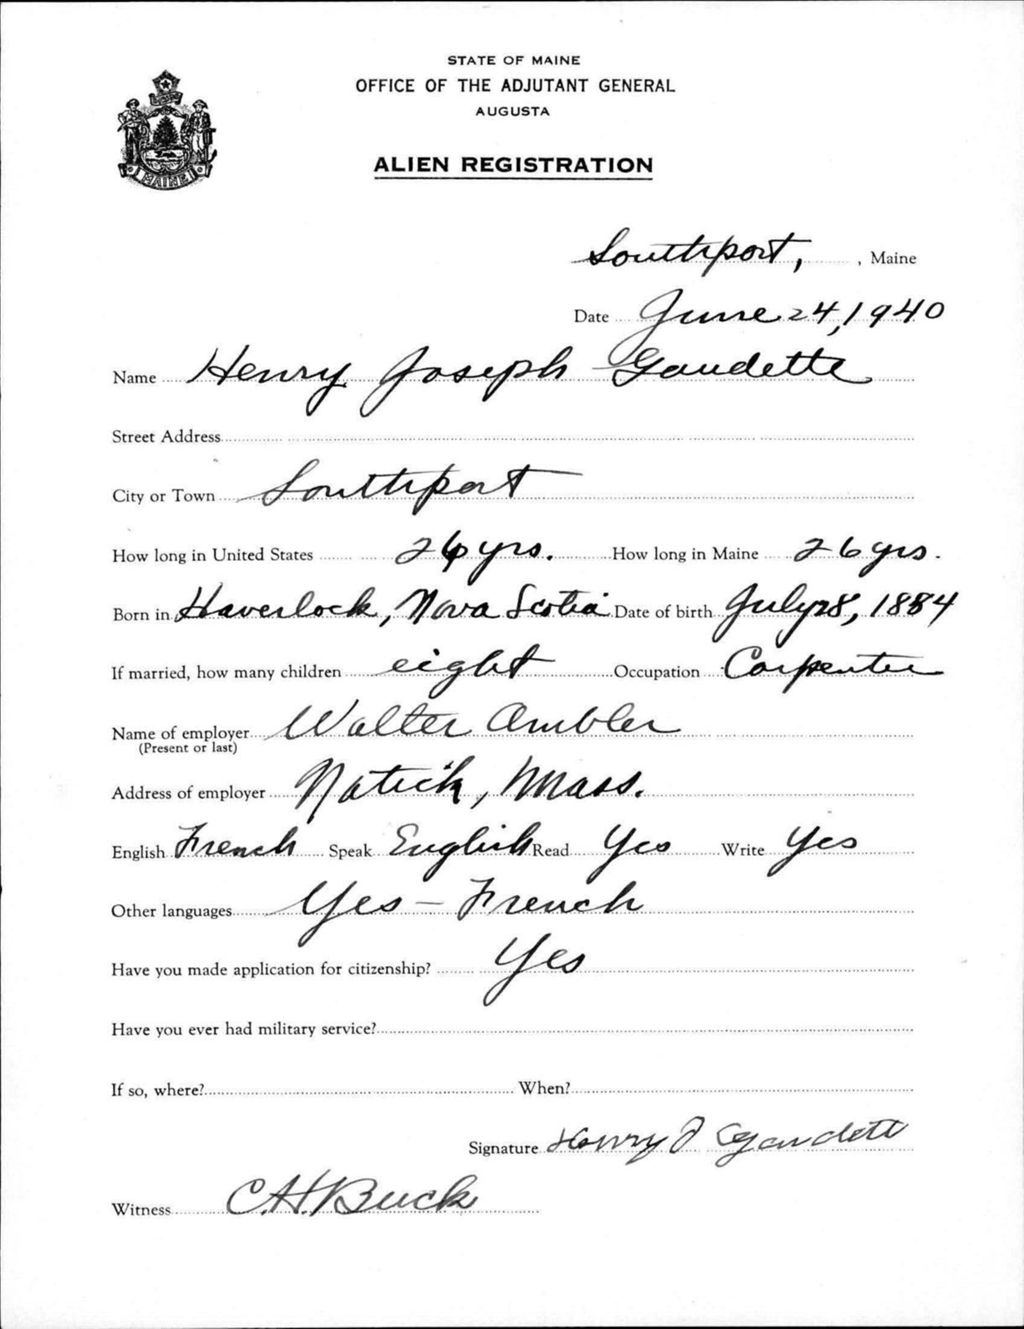 STATE OF MAINE
OFFICE OF THE ADJUTANT GENERAL
AUGUSTA
ALIEN REGISTRATION
MAINE
Southport, , Maine
Date June 24, 1940
Name Henry Joseph Gaudette
Street Address
City or Town Southport
How long in United States 26 yrs. How long in Maine 26 yrs.
Born in Haverlock, Nova Scotia Date of birth July 28, 1884
If married, how many children eight Occupation Carpenter
Name of employer Walter Ambler
(Present or last)
Address of employer Natick, Mass.
English French Speak English Read Yes Write Yes
Other languages Yes - French
Have you made application for citizenship? Yes
Have you ever had military service?
If so, where? When?
Signature Henry J Gaudett
Witness C.H. Buck